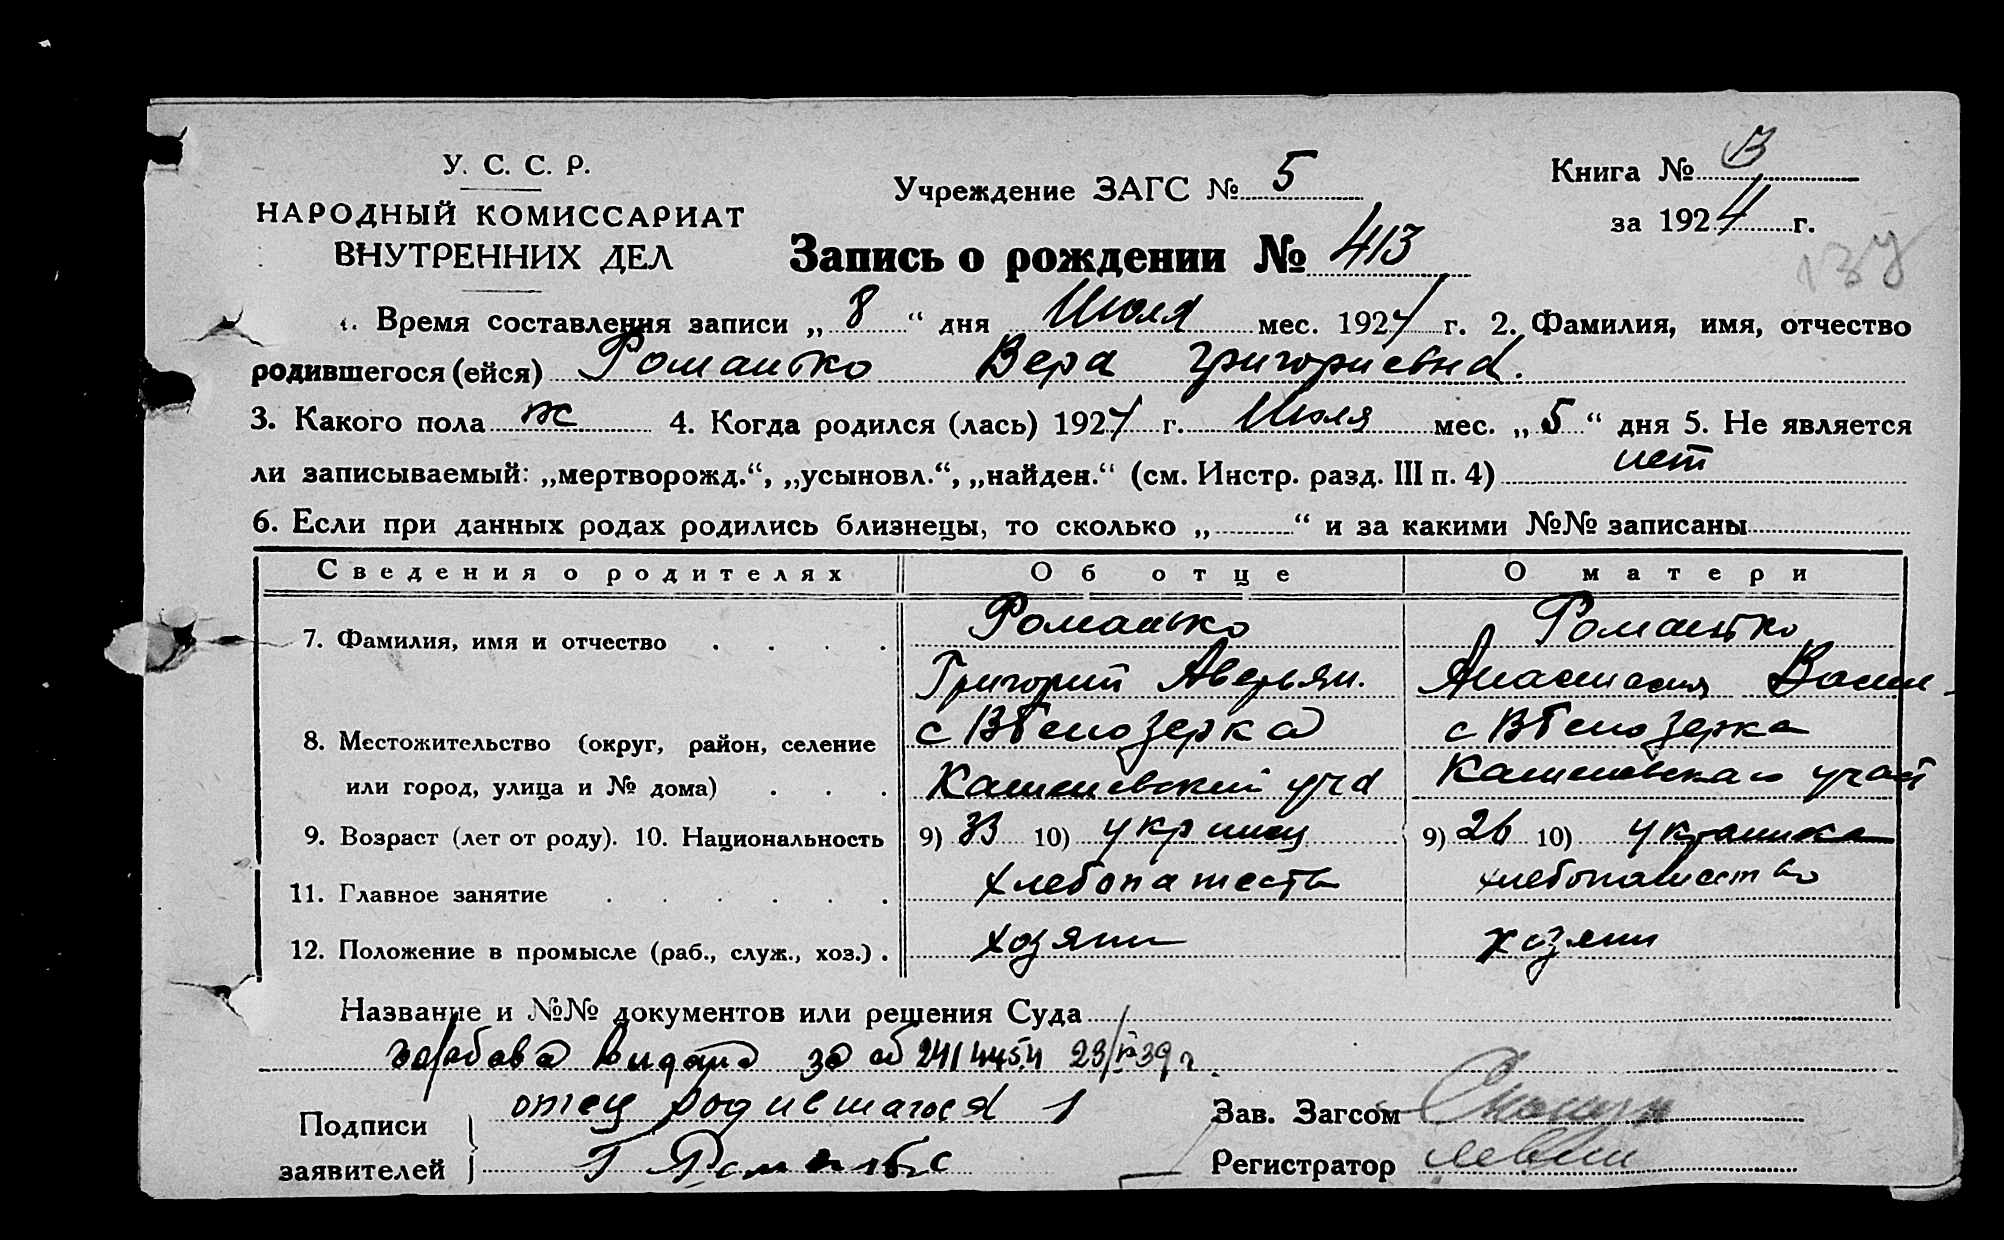 У. С. С. Р.
НАРОДНЫЙ КОМИССАРИАТ
ВНУТРЕННИХ ДЕЛ
Учреждение ЗАГС № 5
Книга № В
за 1924 г.
Запись о рождении № 413
1. Время составления записи „8“ дня Июля мес. 1924 г. 2. Фамилия, имя, отчество
родившегося (ейся) Романько Вера Григориевна.
3. Какого пола ж 4. Когда родился (лась) 1924 г. Июля мес. „5“ дня 5. Не является
ли записываемый: „мертворожд.“, „усыновл.“, „найден.“ (см. Инстр. разд. III п. 4) нет
6. Если при данных родах родились близнецы, то сколько „ “ и за какими №№ записаны
Сведения о родителях Об отце О матери
7. Фамилия, имя и отчество Романько Романько
Григорий Аверьян. Анастасия Васил-
8. Местожительство (округ, район, селение с ВБелозерка с ВБелозерка
или город, улица и № дома)
9. Возраст (лет от роду). 10. Национальность 9) 33 10) 9) 26 10)
11. Главное занятие хлебопашеств хлебопашество
12. Положение в промысле (раб., служ., хоз.) хозяин хозяин
Название и №№ документов или решения Суда
за 23/ 39 г.
Подписи
заявителей
отец родившагося
Г Романько
Зав. Загсом
Регистратор